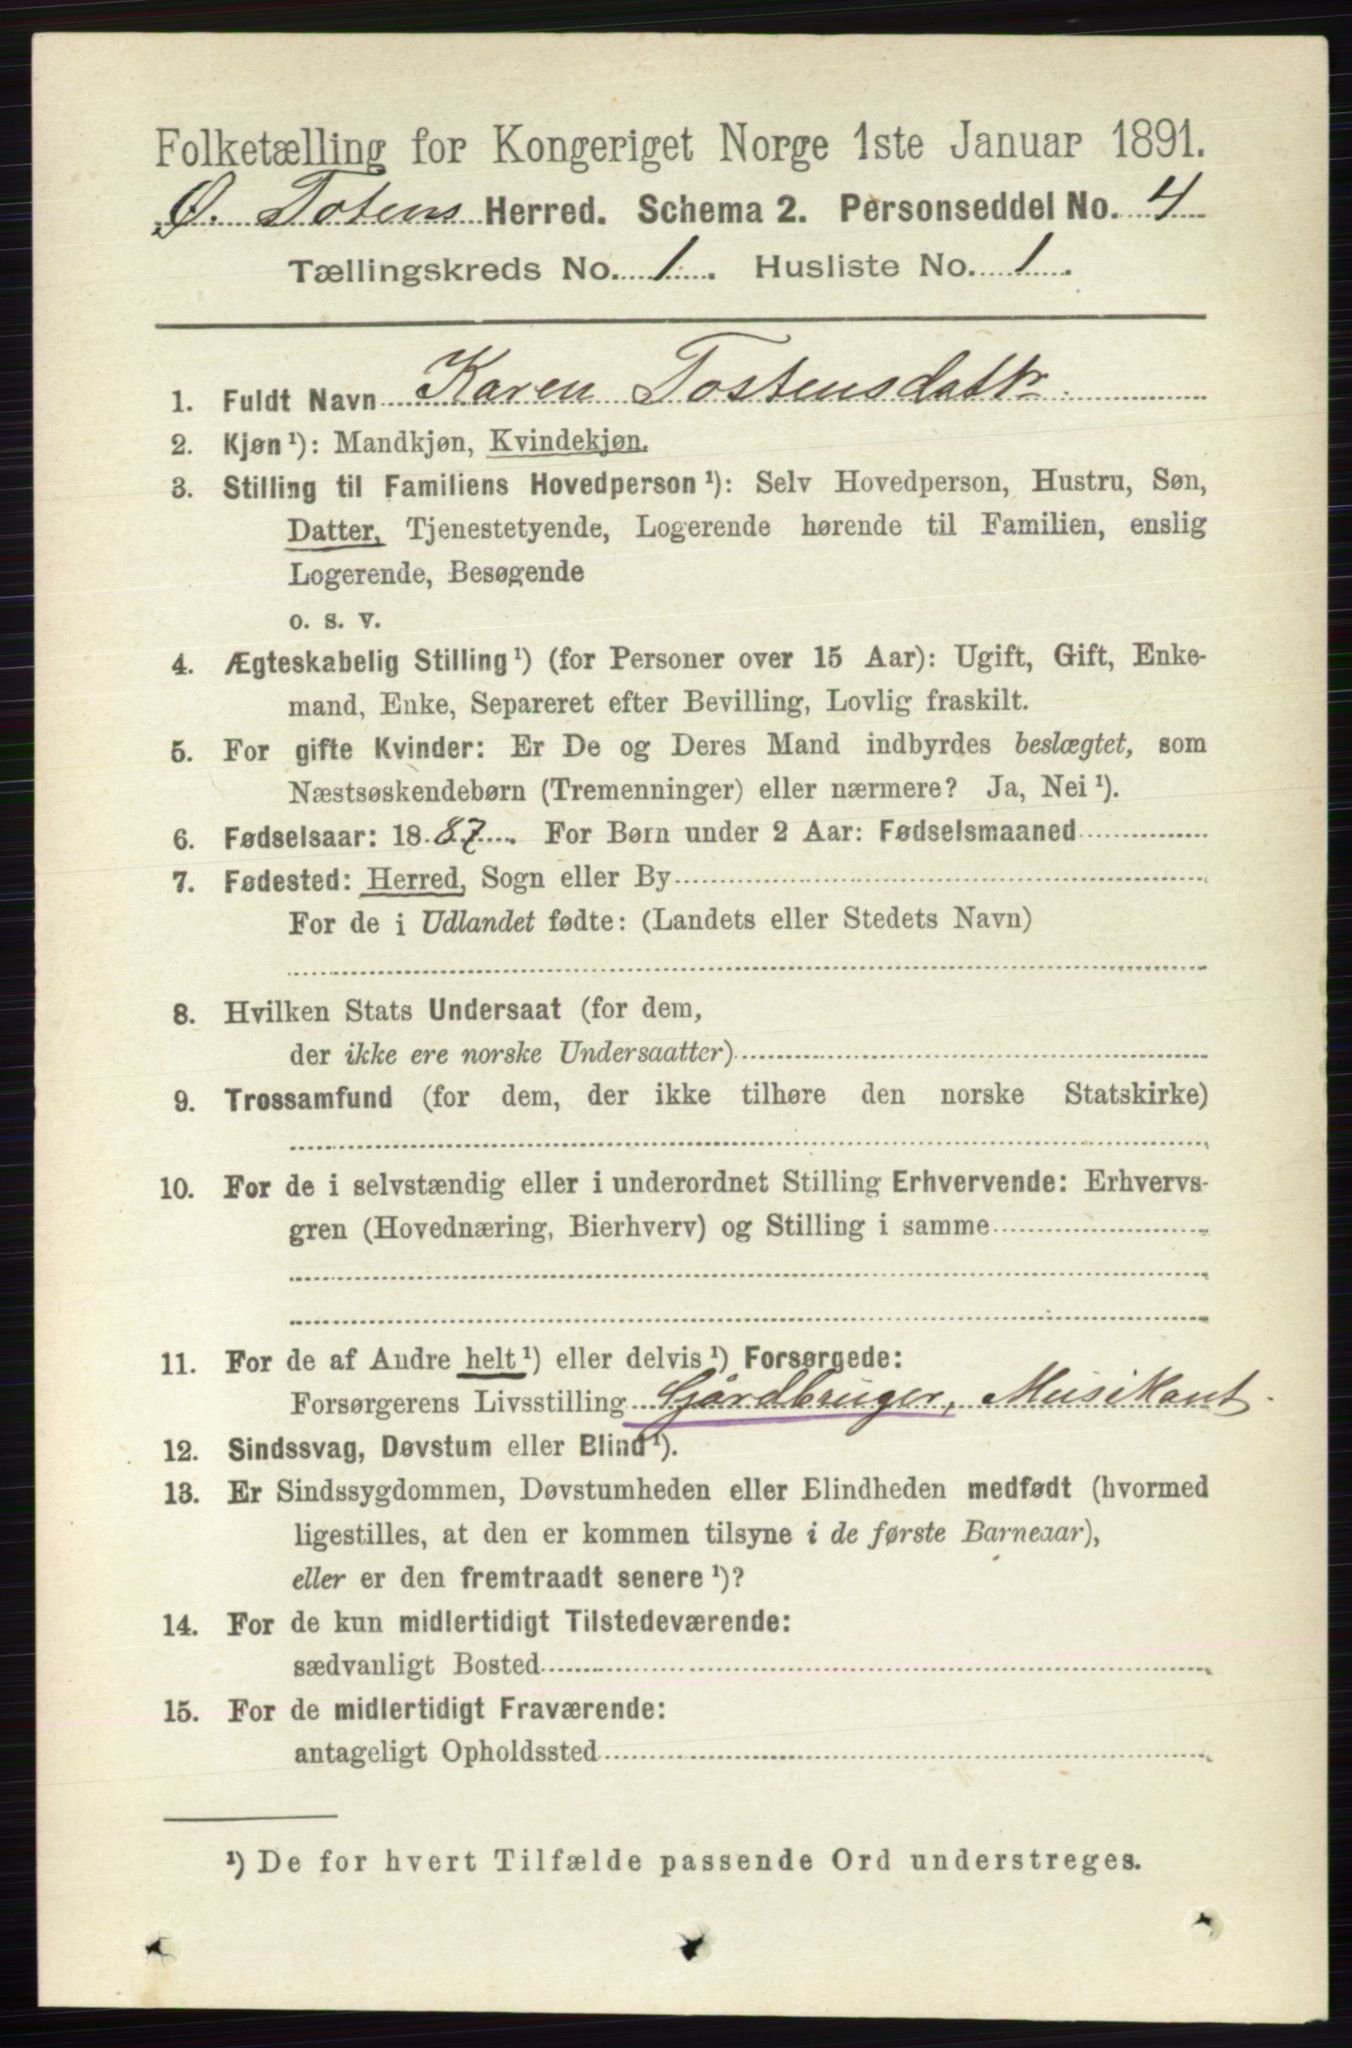 Folketælling for Kongeriget Norge 1ste Januar 1891.
Ø. Totens Herred. Schema 2. Personseddel No. 4
Tællingskreds No. 1. Husliste No. 1.
1. Fuldt Navn Karen Tostensdattr
2. Kjøn ¹): Mandkjøn, Kvindekjøn.
3. Stilling til Familiens Hovedperson ¹): Selv Hovedperson, Hustru, Søn,
Datter, Tjenestetyende, Logerende hørende til Familien, enslig
Logerende, Besøgende
o. s. v.
4. Ægteskabelig Stilling ¹) (for Personer over 15 Aar): Ugift, Gift, Enke-
mand, Enke, Separeret efter Bevilling, Lovlig fraskilt.
5. For gifte Kvinder: Er De og Deres Mand indbyrdes beslægtet, som
Næstsøskendebørn (Tremenninger) eller nærmere? Ja, Nei ¹).
6. Fødselsaar: 1887. For Børn under 2 Aar: Fødselsmaaned
7. Fødested: Herred, Sogn eller By
For de i Udlandet fødte: (Landets eller Stedets Navn)
8. Hvilken Stats Undersaat (for dem,
der ikke ere norske Undersaatter)
9. Trossamfund (for dem, der ikke tilhøre den norske Statskirke)
10. For de i selvstændig eller i underordnet Stilling Erhvervende: Erhvervs-
gren (Hovednæring, Bierhverv) og Stilling i samme
11. For de af Andre helt ¹) eller delvis ¹) Forsørgede:
Forsørgerens Livsstilling Gjårdbruger, Musikant.
12. Sindssvag, Døvstum eller Blind ¹).
13. Er Sindssygdommen, Døvstumheden eller Blindheden medfødt (hvormed
ligestilles, at den er kommen tilsyne i de første Barneaar),
eller er den fremtraadt senere ¹)?
14. For de kun midlertidigt Tilstedeværende:
sædvanligt Bosted
15. For de midlertidigt Fraværende:
antageligt Opholdssted
¹) De for hvert Tilfælde passende Ord understreges.